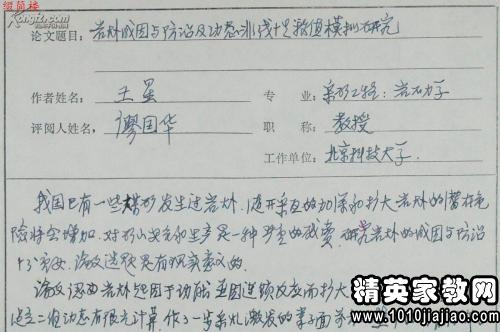 缀简楼
kongfz.com
论文题目: 岩爆成因与防治及动态非线性数值模拟研究
作者姓名: 王星 专业: 采矿工程: 岩石力学
评阅人姓名: 廖国华 职称: 教授
工作单位: 北京科技大学.
我国已有一些矿发生过岩爆. 随开采的加深和扩大岩爆的潜在危
险将会增加. 对矿山安全和生产是一种严重的威胁. 研究岩爆的成因与防治
十分重要. 论文选题是有现实意义的.
论文认为岩爆起因于
精英家教网
www.1010jiajiao.com